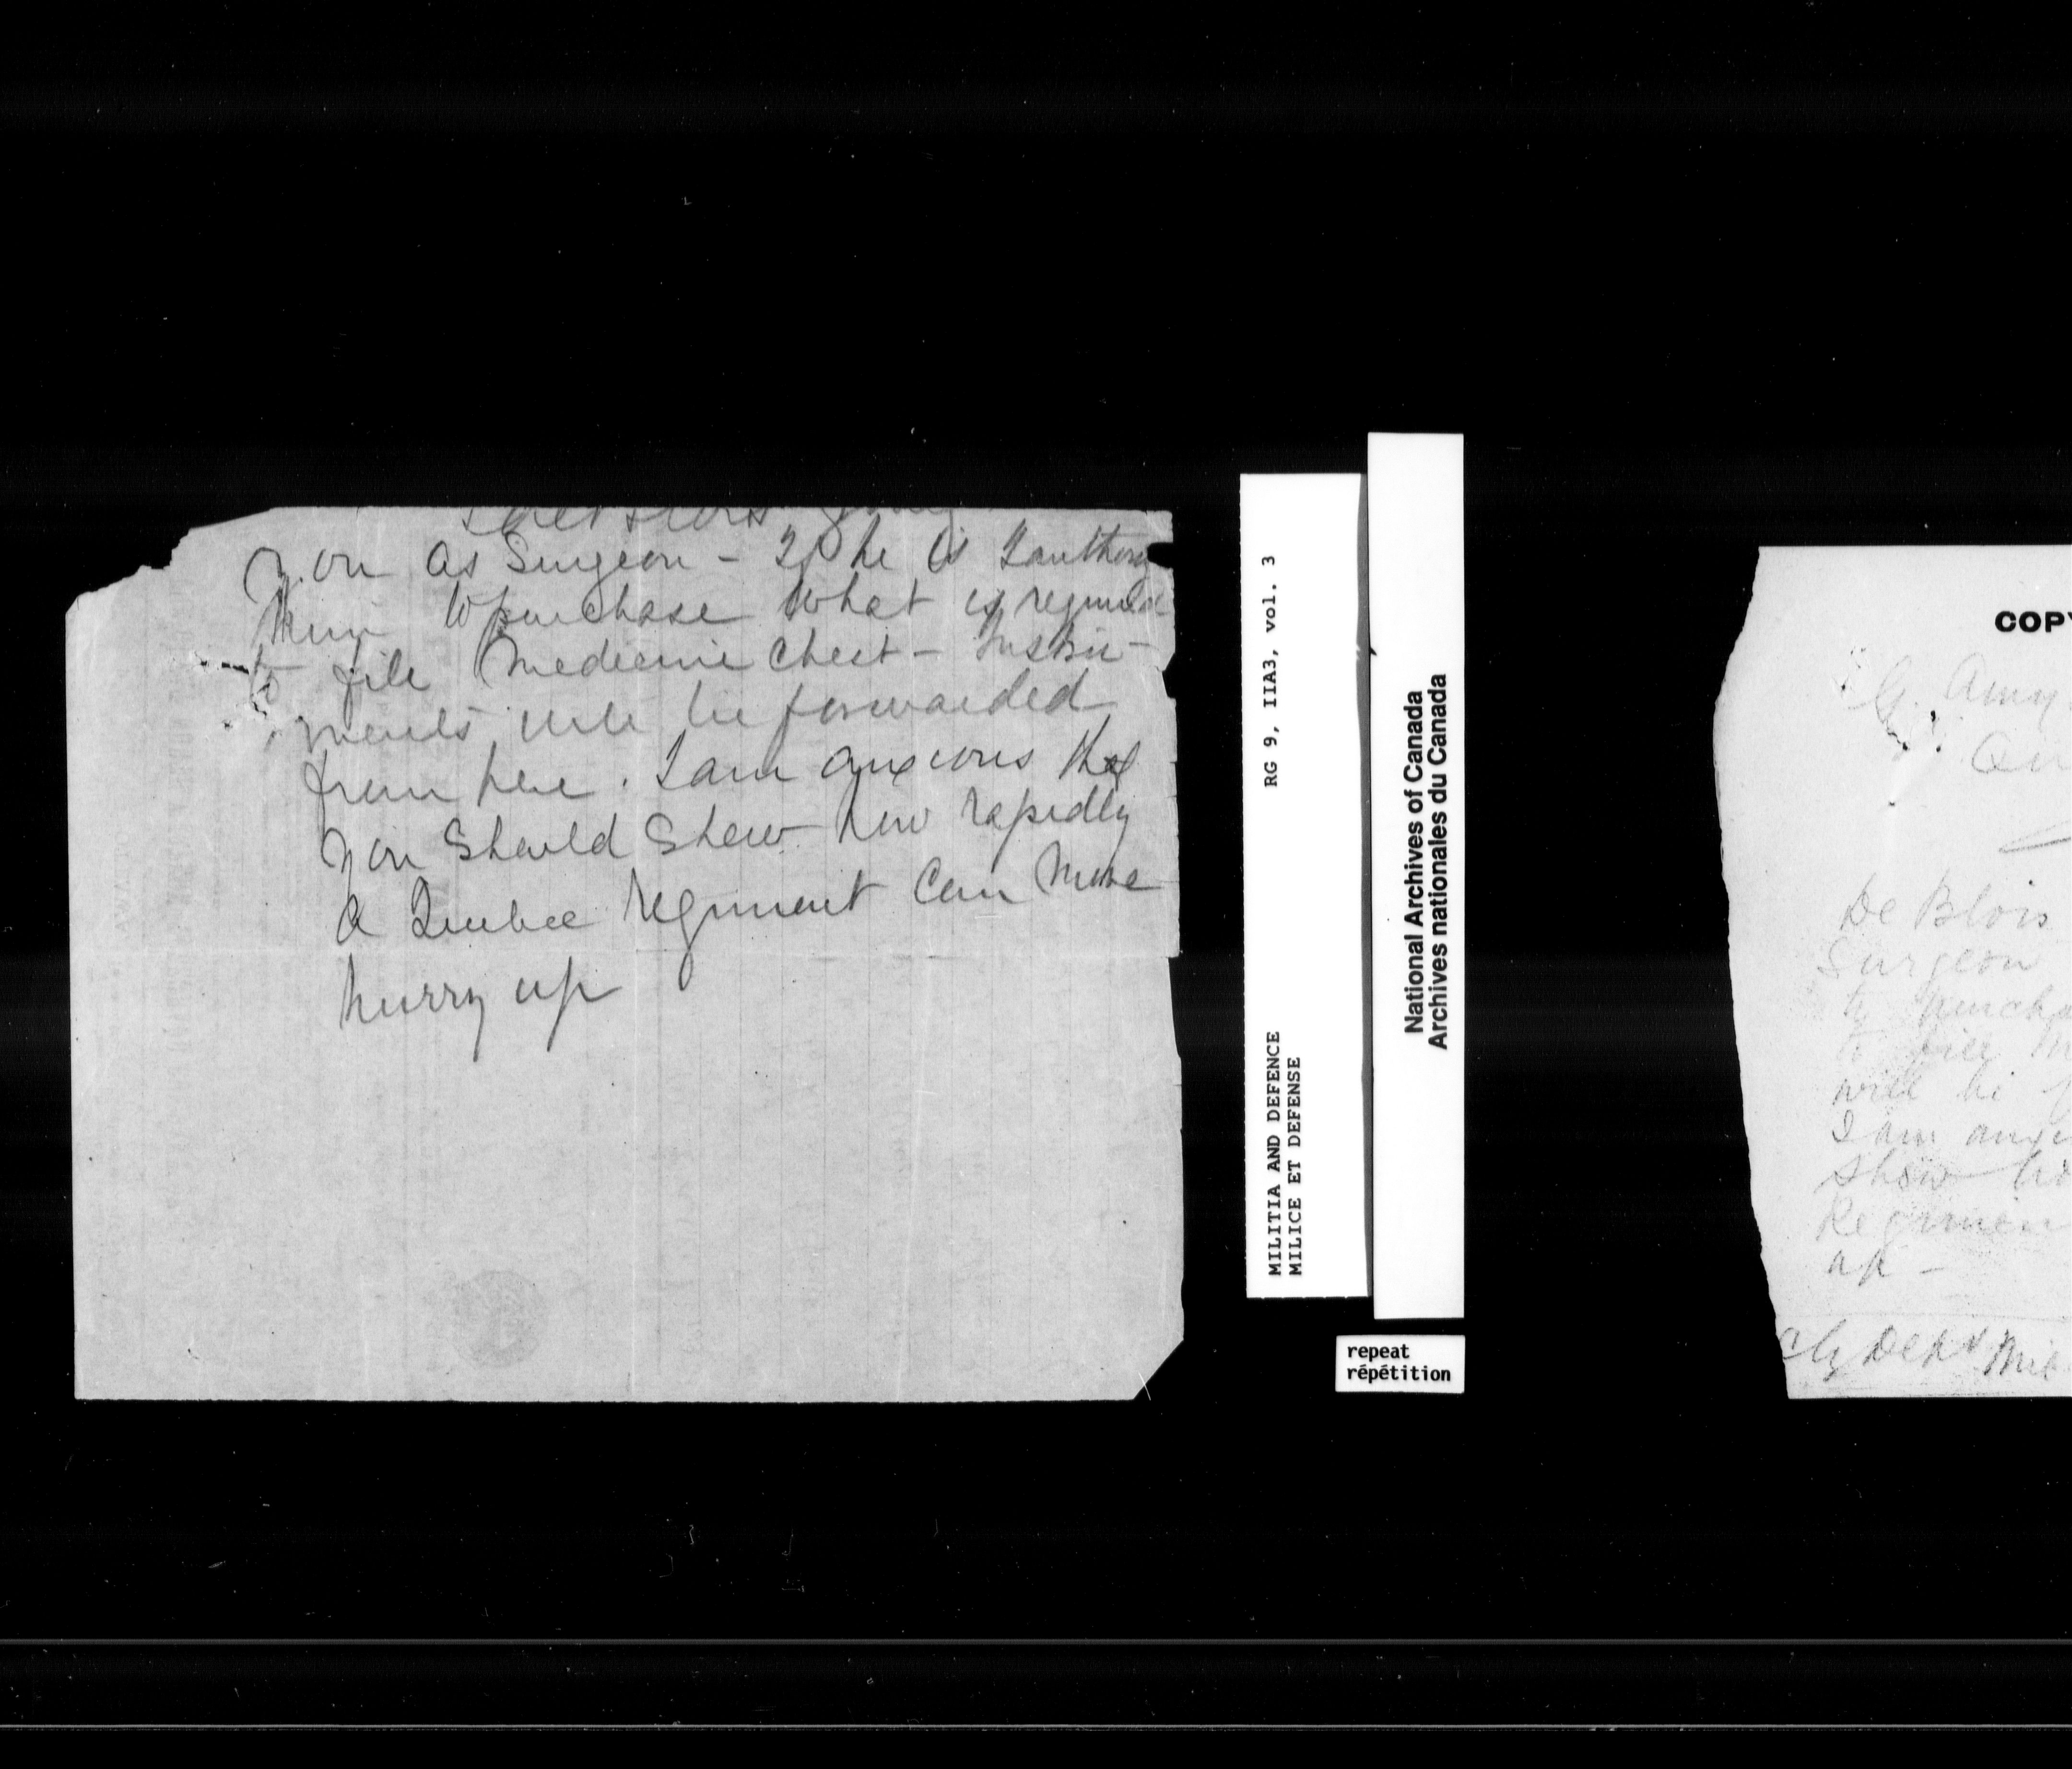 you as Surgeon - If he is I authorize
him to purchase what is required
to fill Medecine Chest - Instru-
ments will be forwarded
from here. I am anxious that
you should shew how rapidly
a Quebec Regiment can move
hurry up
MILITIA AND DEFENCE RG 9, IIA3, vol. 3
MILICE ET DEFENSE
National Archives of Canada
Archives nationales du Canada
repeat
répétition
COPY
De Blois
Surgeon
to purcha
to fill M
will be f
I am anxi
show ho
Regimen
up -
Dept Mil